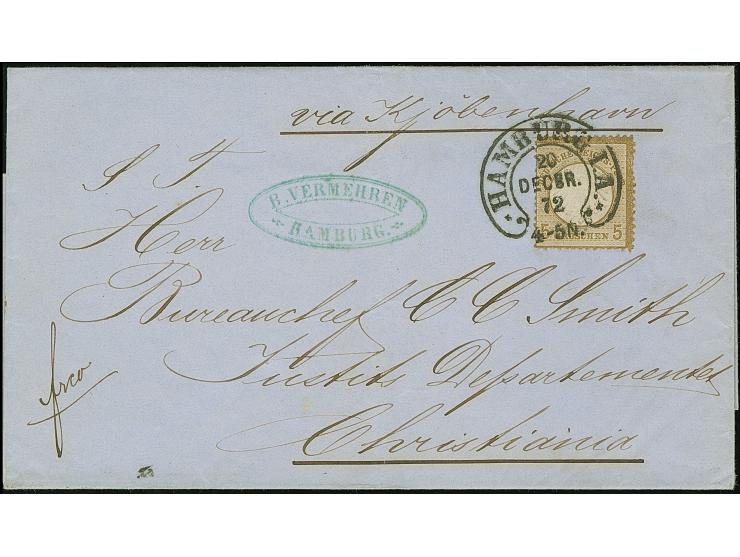 via Kjöbenhavn
HAMBURG I.A.
20
DECBR.
72
4-5N.
5 GROSCHEN 5
S. T.
B. VERMEHREN
HAMBURG.
Herr
Bureauchef C C Smith
Justits Departementet
Christiania
frco